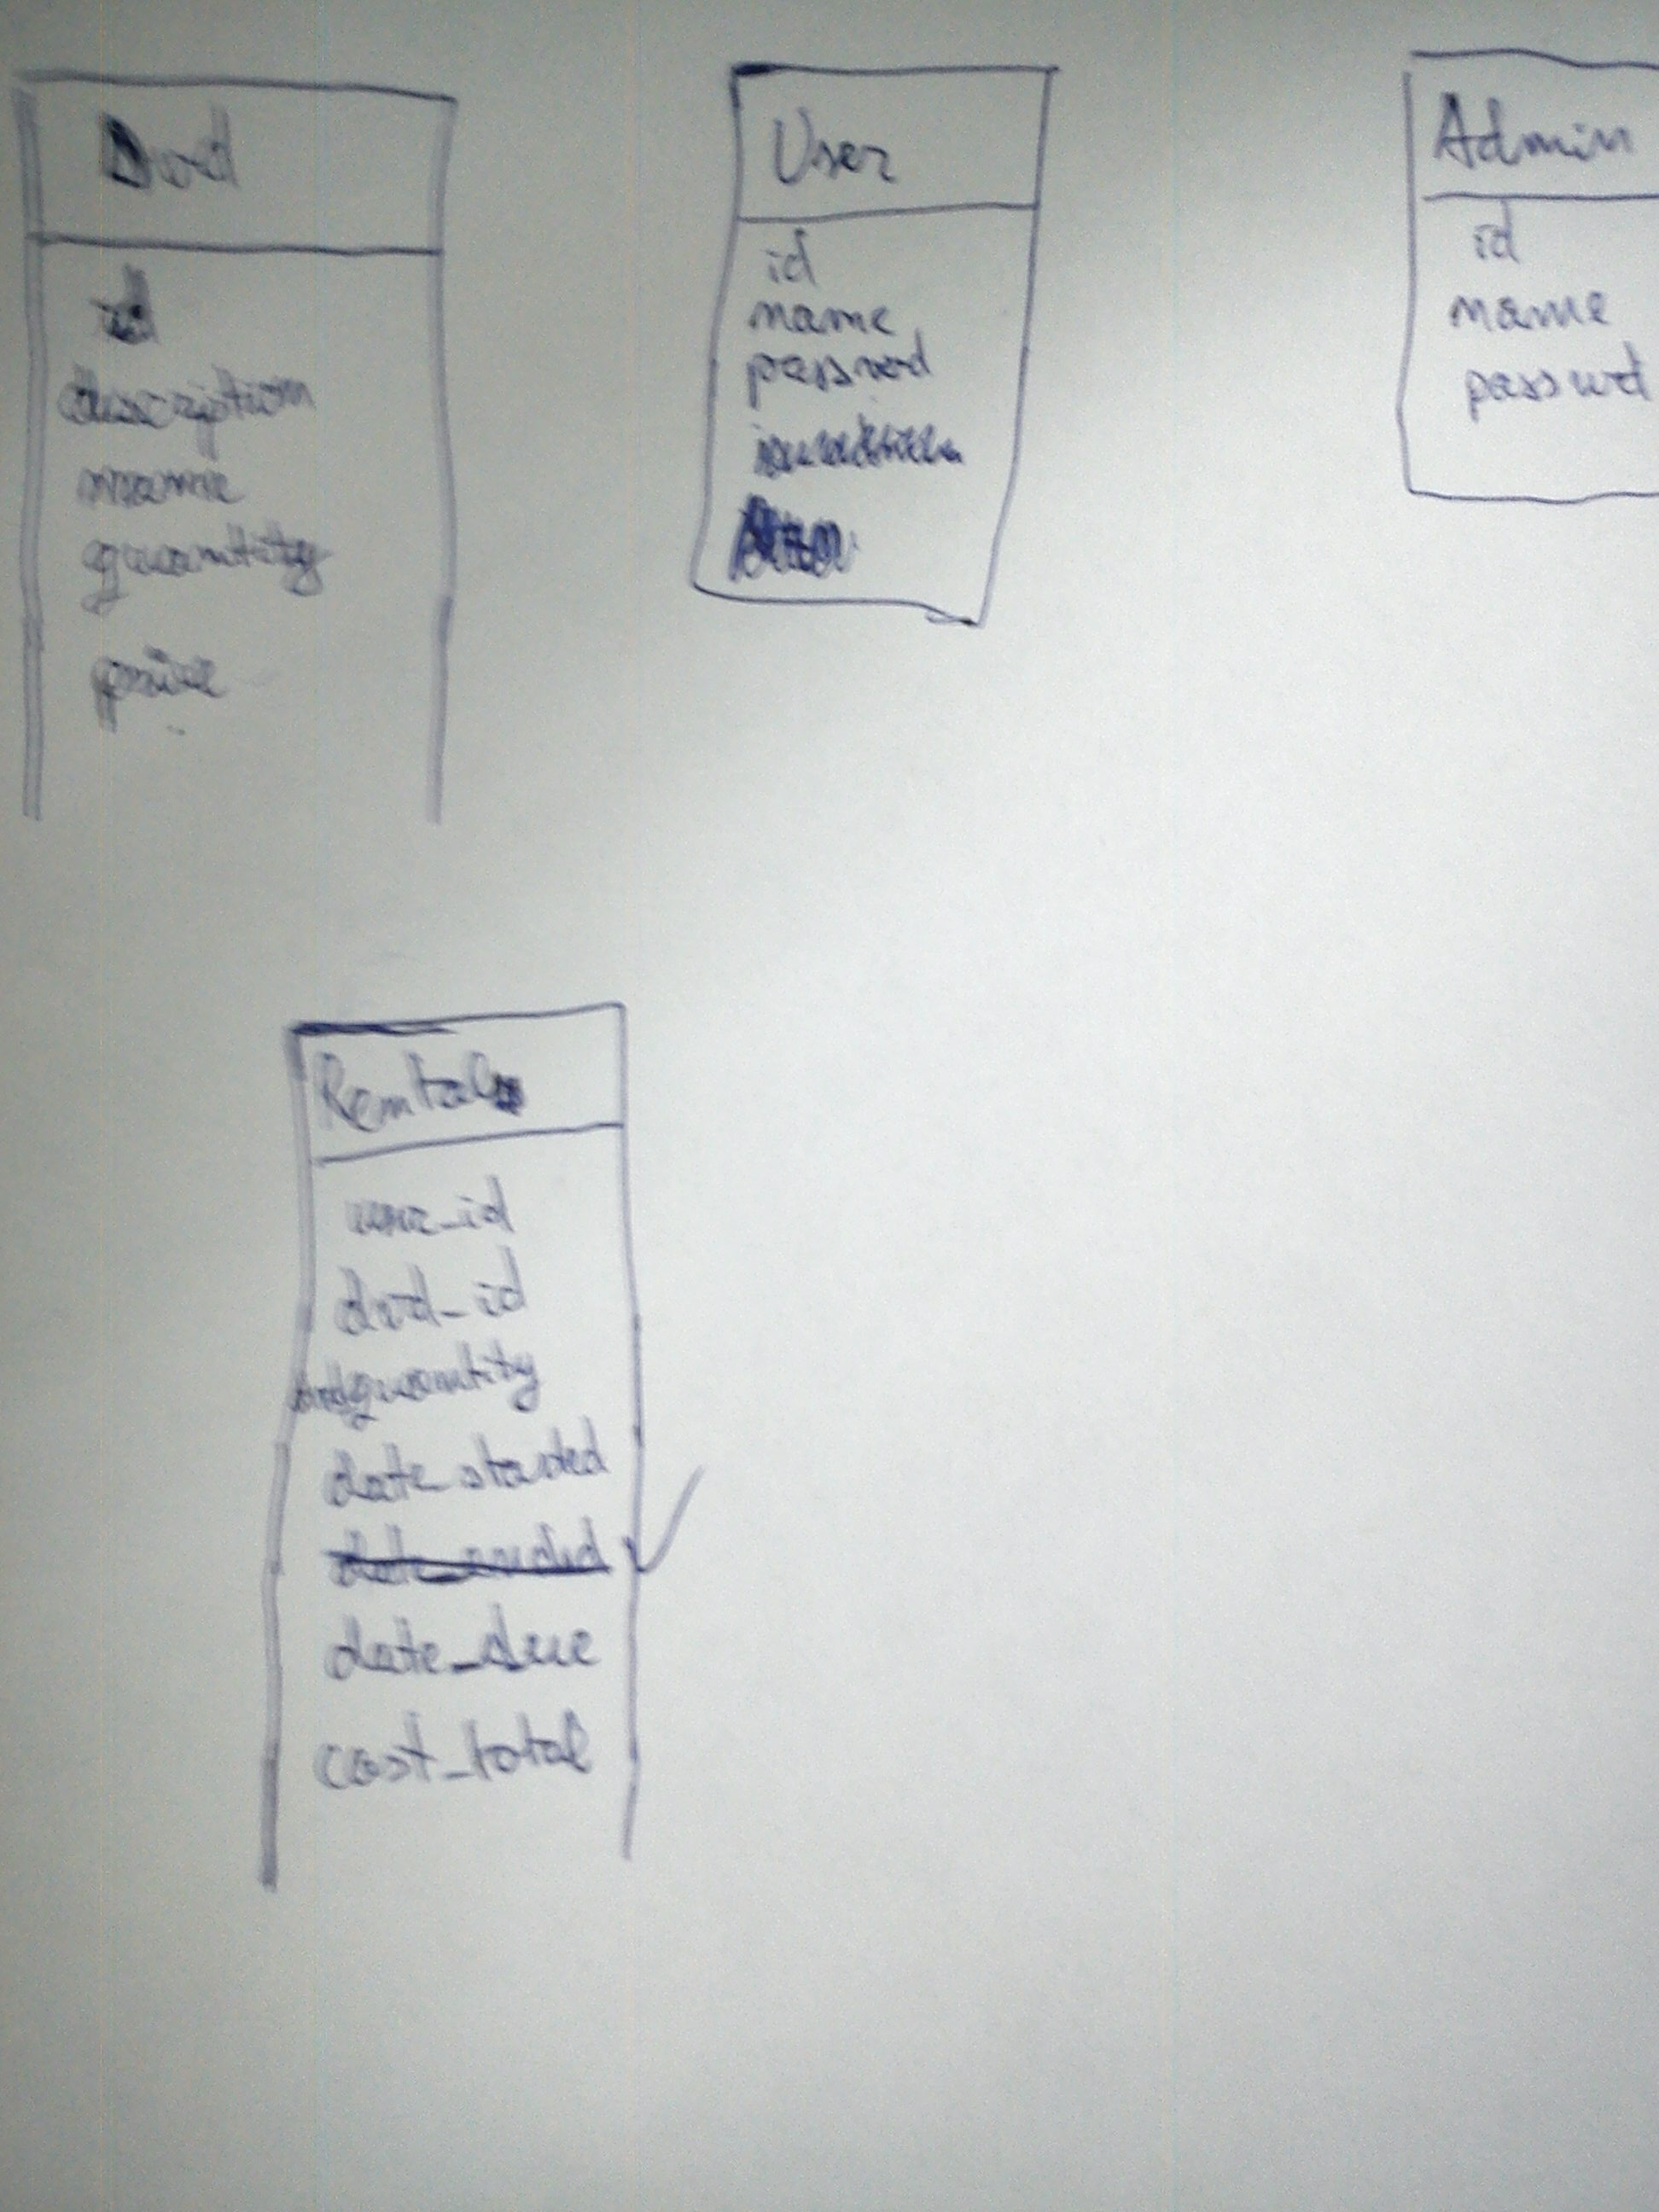 Dvd
id
description
name
quantity
price
User
id
name
passwd
Admin
id
name
passwd
Rental
user_id
dvd_id
quantity
date_started
date_ended
date_due
cost_total